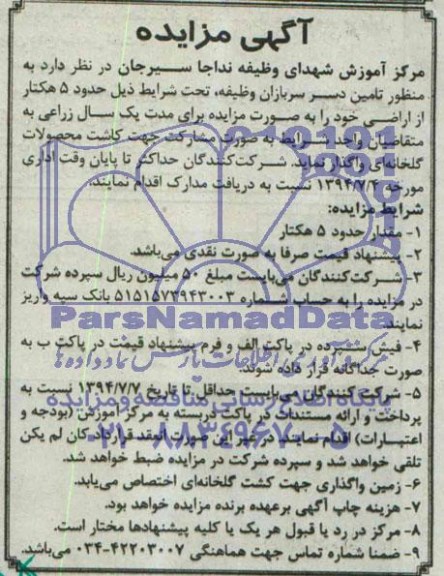 آگهی مزایده
مرکز آموزش شهدای وظیفه نداجا سیرجان در نظر دارد به
منظور تامین دسر سربازان وظیفه، تحت شرایط ذیل حدود ۵ هکتار
از اراضی خود را به صورت مزایده برای مدت یک سال زراعی به
متقاضیان واجد شرایط به صورت مشارکت جهت کاشت محصولات
گلخانه‌ای واگذار نماید. شرکت‌کنندگان حداکثر تا پایان وقت اداری
مورخه ۱۳۹۴/۷/۴ نسبت به دریافت مدارک اقدام نمایند.
شرایط مزایده:
۱- مقدار حدود ۵ هکتار
۲- پیشنهاد قیمت صرفا به صورت نقدی می‌باشد.
۳- شرکت‌کنندگان می‌بایست مبلغ ۵۰ میلیون ریال سپرده شرکت
در مزایده را به حساب شماره ۵۱۵۱۵۷۳۹۴۳۰۰۳ بانک سپه واریز
نمایند.
ParsNamadData
۴- فیش سپرده در پاکت الف و فرم پیشنهاد قیمت در پاکت ب به
صورت جداگانه قرار داده شوند.
۵- شرکت کنندگان می‌بایست حداقل تا تاریخ ۱۳۹۴/۷/۷ نسبت به
پایگاه اطلاع رسانی مناقصه و مزایده
پرداخت و ارائه مستندات در پاکت دربسته به مرکز آموزش (بودجه و
اعتبارات) اقدام نمایند. در غیر این صورت قرارداد کان لم یکن
۰۲۱-۸۸۳۴۹۶۷۰-۵
تلقی خواهد شد و سپرده شرکت در مزایده ضبط خواهد شد.
۶- زمین واگذاری جهت کشت گلخانه‌ای اختصاص می‌یابد.
۷- هزینه چاپ آگهی برعهده برنده مزایده خواهد بود.
۸- مرکز در رد یا قبول هر یک یا کلیه پیشنهادها مختار است.
۹- ضمنا شماره تماس جهت هماهنگی ۴۲۲۰۳۰۰۷-۰۳۴ می‌باشد.